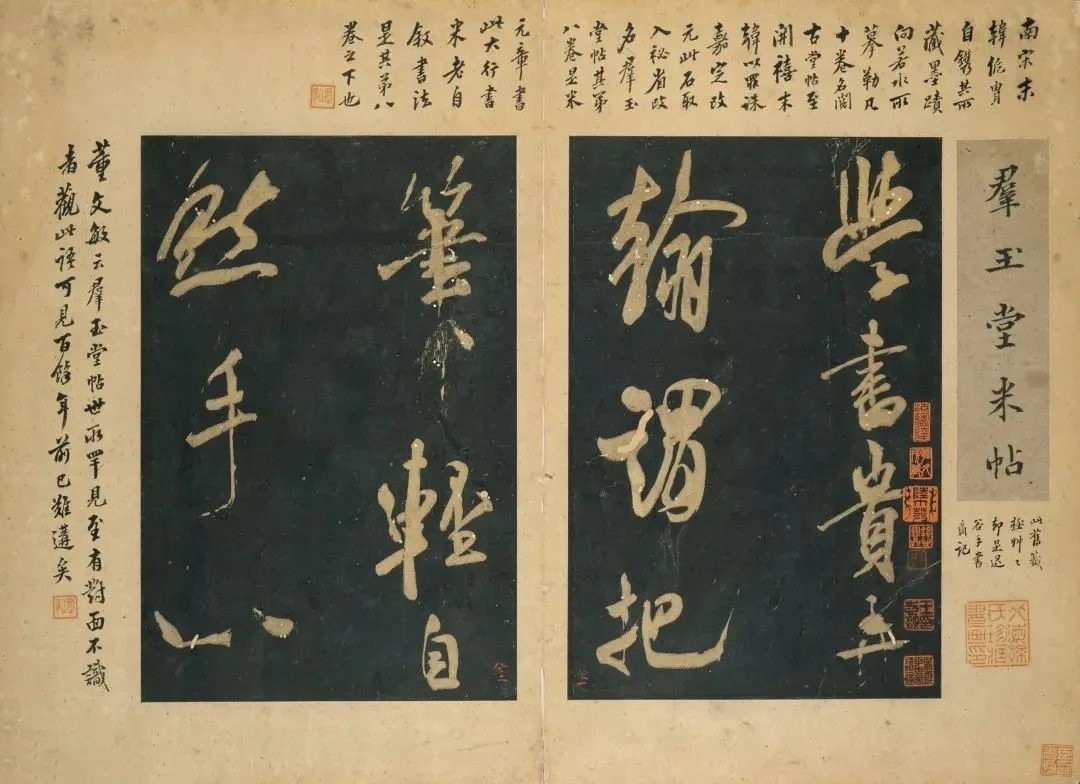 羣玉堂米帖
此舊籤
極艸〻
却是退
谷手書
記
北海孫
氏珍藏
書畫印
南宋末
韓侂胄
自鐫其所
藏墨蹟
向若水所
摹勒凡
十卷名閱
古堂帖至
開禧末
韓以罪誅
嘉定改
元此石取
入秘省改
名羣玉
堂帖其第
八卷是米
元章書
此大行書
米老自
敘書法
是其第八
卷之下也
學書貴弄
翰謂把
筆輕自
然手心
董文敏云羣玉堂帖世所罕見至有對面不識
者觀此語可見百餘年前已難遘矣